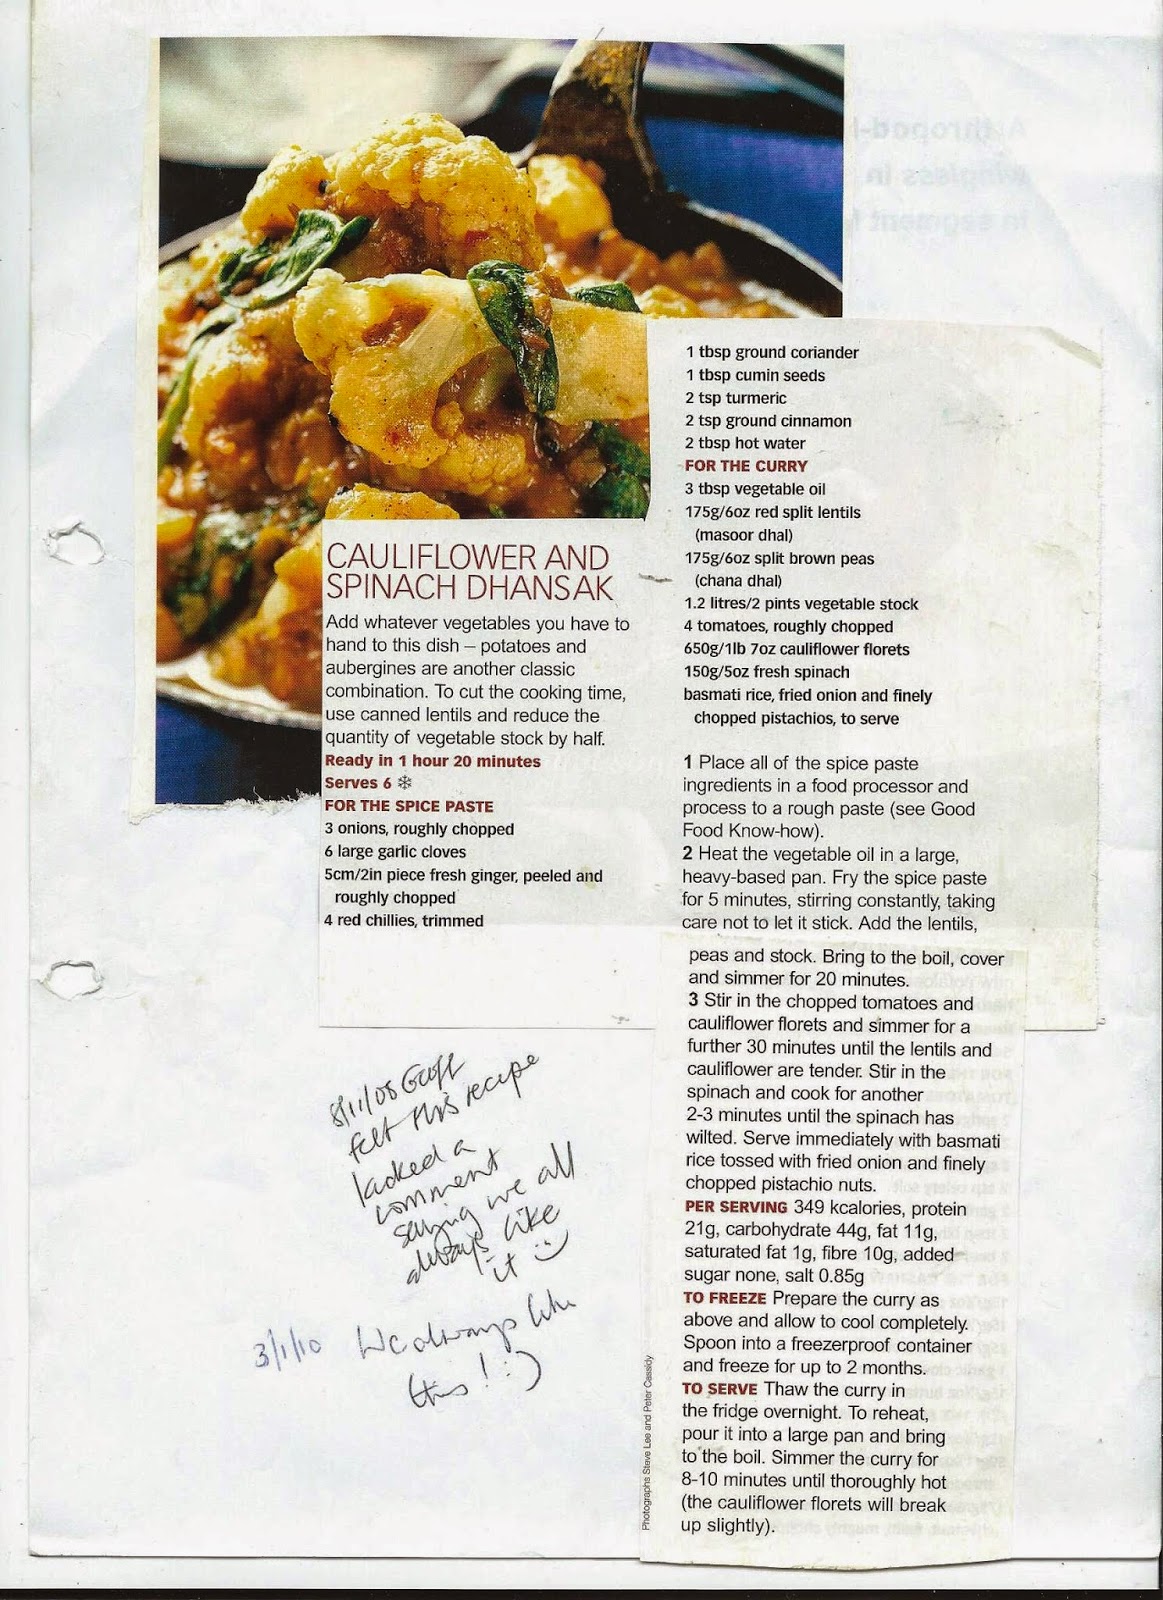 CAULIFLOWER AND
SPINACH DHANSAK
Add whatever vegetables you have to
hand to this dish – potatoes and
aubergines are another classic
combination. To cut the cooking time,
use canned lentils and reduce the
quantity of vegetable stock by half.
Ready in 1 hour 20 minutes
Serves 6 ❄
FOR THE SPICE PASTE
3 onions, roughly chopped
6 large garlic cloves
5cm/2in piece fresh ginger, peeled and
roughly chopped
4 red chillies, trimmed
1 tbsp ground coriander
1 tbsp cumin seeds
2 tsp turmeric
2 tsp ground cinnamon
2 tbsp hot water
FOR THE CURRY
3 tbsp vegetable oil
175g/6oz red split lentils
(masoor dhal)
175g/6oz split brown peas
(chana dhal)
1.2 litres/2 pints vegetable stock
4 tomatoes, roughly chopped
650g/1lb 7oz cauliflower florets
150g/5oz fresh spinach
basmati rice, fried onion and finely
chopped pistachios, to serve
1 Place all of the spice paste
ingredients in a food processor and
process to a rough paste (see Good
Food Know-how).
2 Heat the vegetable oil in a large,
heavy-based pan. Fry the spice paste
for 5 minutes, stirring constantly, taking
care not to let it stick. Add the lentils,
peas and stock. Bring to the boil, cover
and simmer for 20 minutes.
3 Stir in the chopped tomatoes and
cauliflower florets and simmer for a
further 30 minutes until the lentils and
cauliflower are tender. Stir in the
spinach and cook for another
2-3 minutes until the spinach has
wilted. Serve immediately with basmati
rice tossed with fried onion and finely
chopped pistachio nuts.
PER SERVING 349 kcalories, protein
21g, carbohydrate 44g, fat 11g,
saturated fat 1g, fibre 10g, added
sugar none, salt 0.85g
TO FREEZE Prepare the curry as
above and allow to cool completely.
Spoon into a freezerproof container
and freeze for up to 2 months.
TO SERVE Thaw the curry in
the fridge overnight. To reheat,
pour it into a large pan and bring
to the boil. Simmer the curry for
8-10 minutes until thoroughly hot
(the cauliflower florets will break
up slightly).
Photographs Steve Lee and Peter Cassidy
8/11/08
felt this recipe
lacked a
comment
saying we all
always like
it :)
3/1/10 We always like
this! :)